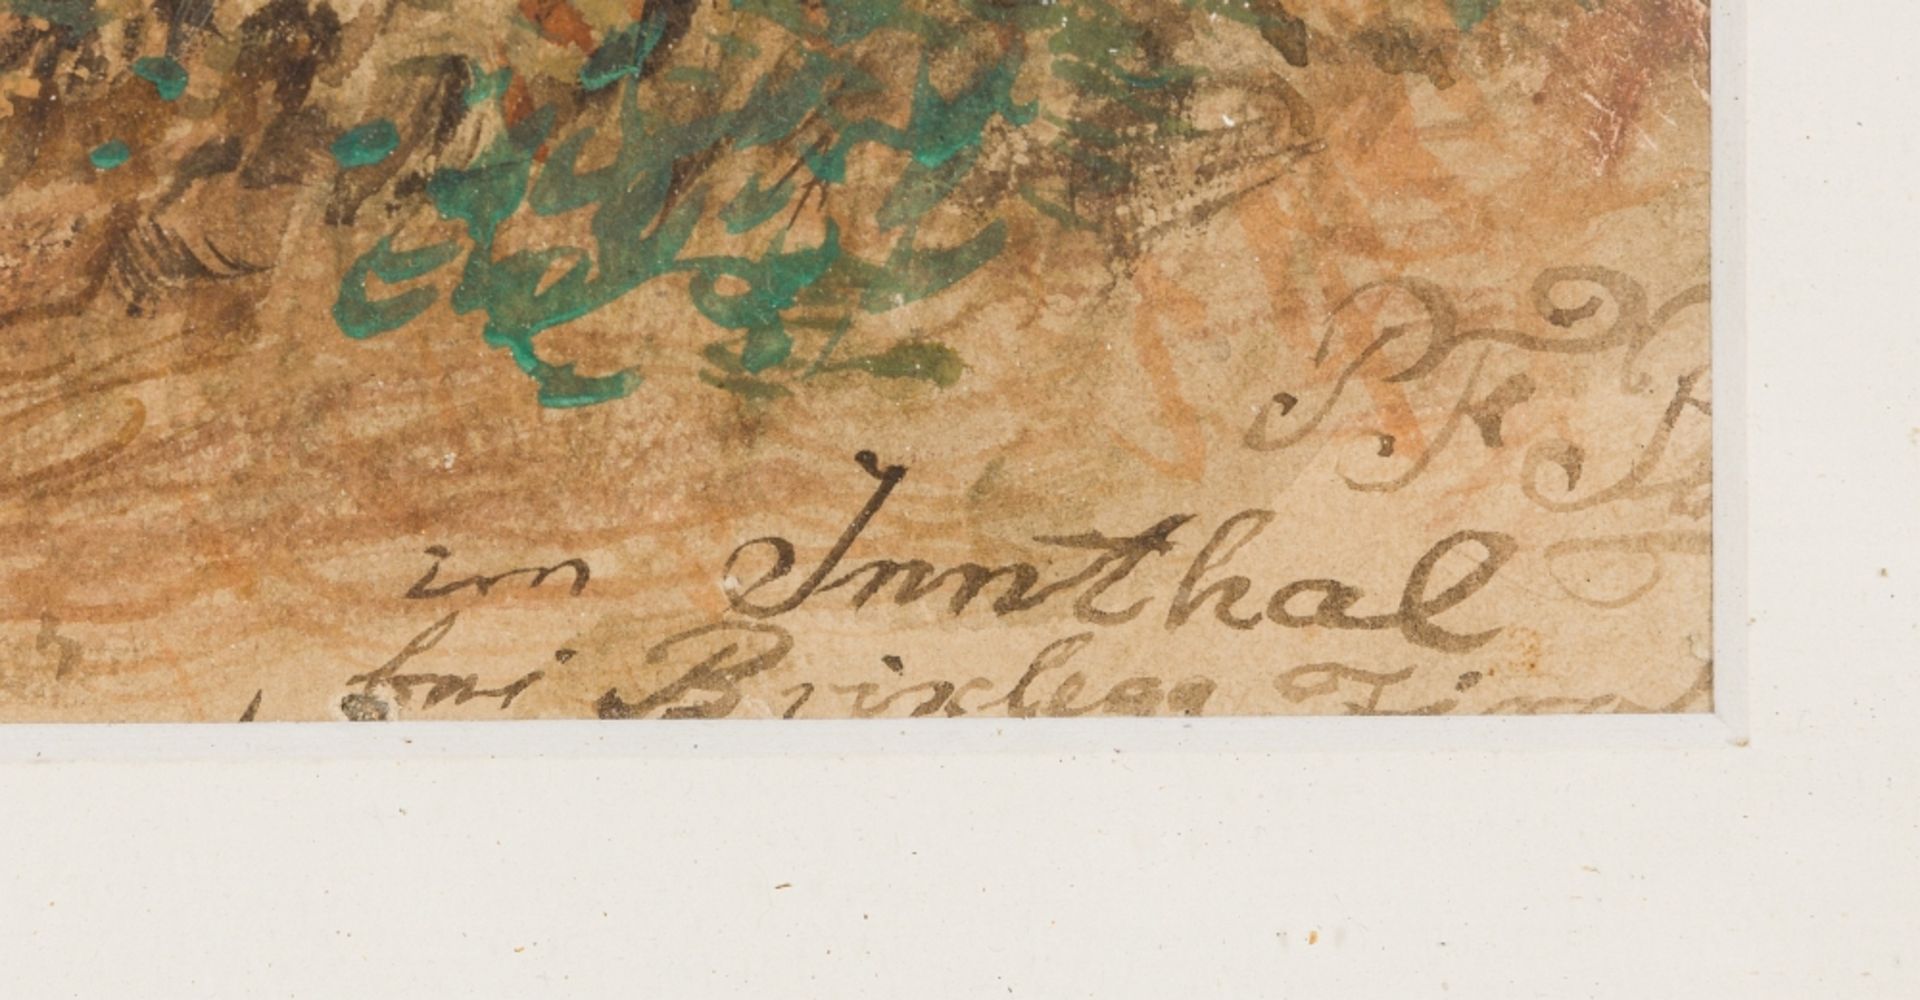 im Innthal
bei Brixlegg Tirol